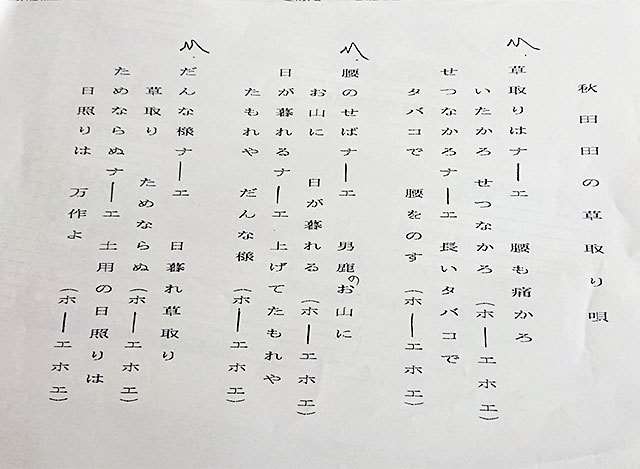 秋田田の草取り唄
〽草取りはナーエ　腰も痛かろ
いたかろ　せつなかろ（ホーエホエ）
せつなかろナーエ　長いタバコで
タバコで　腰をのす（ホーエホエ）
〽腰のせばナーエ　男鹿のお山に
お山に　日が暮れる（ホーエホエ）
日が暮れるナーエ　上げてたもれや
たもれや　だんな様（ホーエホエ）
〽だんな様ナーエ　日暮れ草取り
草取り　ためならぬ（ホーエホエ）
ためならぬナーエ　土用の日照りは
日照りは　万作よ（ホーエホエ）